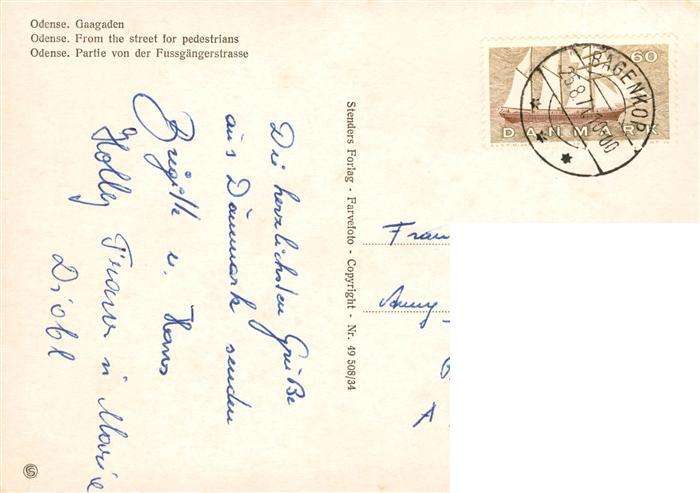 Odense. Gaagaden
Odense. From the street for pedestrians
Odense. Partie von der Fussgängerstrasse
60
DANMARK
BAGENKOP
Die herzlichsten Grüße
aus Dänmark senden
Brigitte u. Hans
Holly Franz u Maria
Diobl
Stenders Forlag - Farvefoto - Copyright - Nr. 49 508/34
Frau
Anny
A